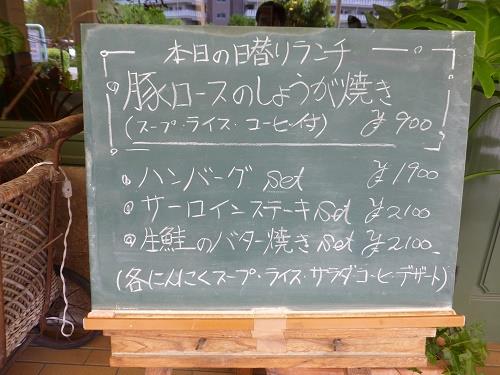 本日の日替りランチ
豚ロースのしょうが焼き
(スープ・ライス・コーヒー付) ¥900
ハンバーグ set ¥1900
サーロインステーキ set ¥2100
生鮭のバター焼き set ¥2100
(各にんにくスープ・ライス・サラダコーヒーデザート)